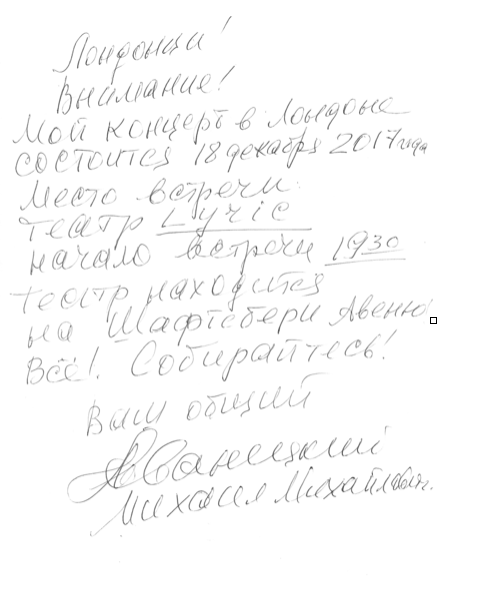 Лондонцы!
Внимание!
Мой концерт в Лондоне
состоится 18 декабря 2017 года
Место встречи:
театр Lyric
начало встречи 1930
театр находится
на Шафтсбери Авеню.
Всё! Собирайтесь!
Ваш общий
Жванецкий
Михаил Михайлович.